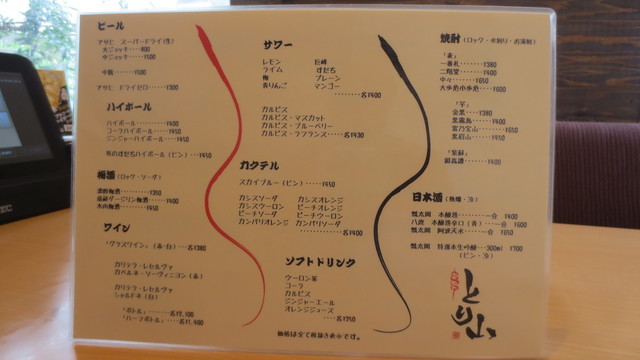 ビール
アサヒ スーパードライ(生)
大ジョッキ・・・・800
中ジョッキ・・・・¥500
中瓶・・・・・・¥600
アサヒ ドライゼロ・・・・・¥300
ハイボール
ハイボール・・・・・・・・¥400
コーラハイボール・・・・¥450
ジンジャーハイボール・・・¥450
(ビン)・・・・¥450
梅酒(ロック・ソーダ)
¥350
¥400
¥450
ワイン
「グラスワイン」(赤・白)・・・各¥380
カリテラ・レセルヴァ
カベルネ・ソーヴィニヨン(赤)
カリテラ・レセルヴァ
シャルドネ(白)
「ボトル」・・・・各¥2,100
「ハーフボトル」・・・各¥1,400
サワー
レモン 巨峰
ライム すだち
梅 プレーン
青りんご マンゴー
・・・・・・・・各¥400
カルピス
カルピス・マスカット
カルピス・ブルーベリー
カルピス・ラフランス・・・・・各¥430
カクテル
スカイブルー(ビン)・・・・・¥450
カシスソーダ カシスオレンジ
カシスウーロン ピーチオレンジ
ピーチソーダ ピーチウーロン
カンパリオレンジ カンパリソーダ
・・・・・・・・各¥400
ソフトドリンク
ウーロン茶
コーラ
カルピス
ジンジャーエール
オレンジジュース
・・・・・・各¥250
焼酎(ロック・水割り・お湯割)
「麦」
一番札・・・・・・・¥380
二階堂・・・・・・・¥400
中々・・・・・・・・¥450
大歩危小歩危・・・・¥600
「芋」
金黒・・・・・・・・¥380
黒霧島・・・・・・・¥400
富乃宝山・・・・・・¥650
黒沼山・・・・・・・¥450
「紫蘇」
鍛高譚・・・・・・・¥400
日本酒(熱燗・冷)
瓢太閤 本醸造・・・・・・・一合 ¥400
八鹿 本醸造辛口(青)・・・一合 ¥600
瓢太閤 阿波天水・・・・一合 ¥650
瓢太閤 特選本生吟醸・・・300ml ¥700
(ビン・冷)
とり山